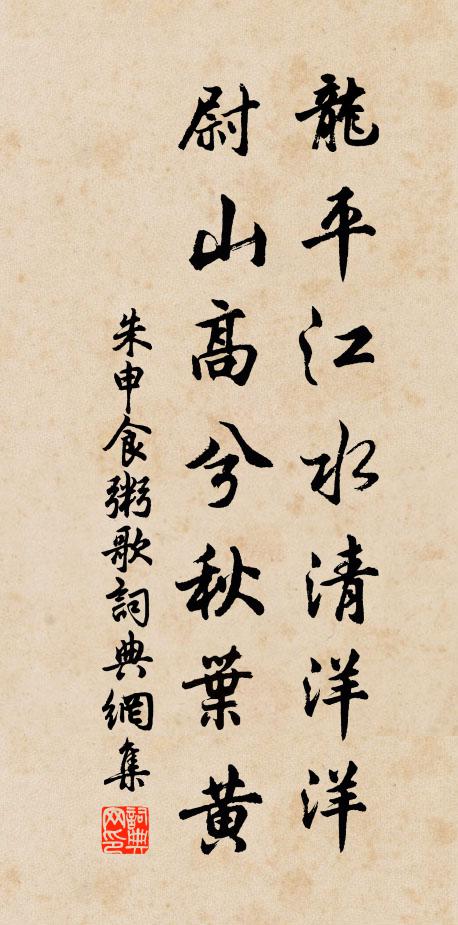 龍平江水清洋洋
尉山高兮秋葉黄
朱申食粥歌詞典網集
詞典网印